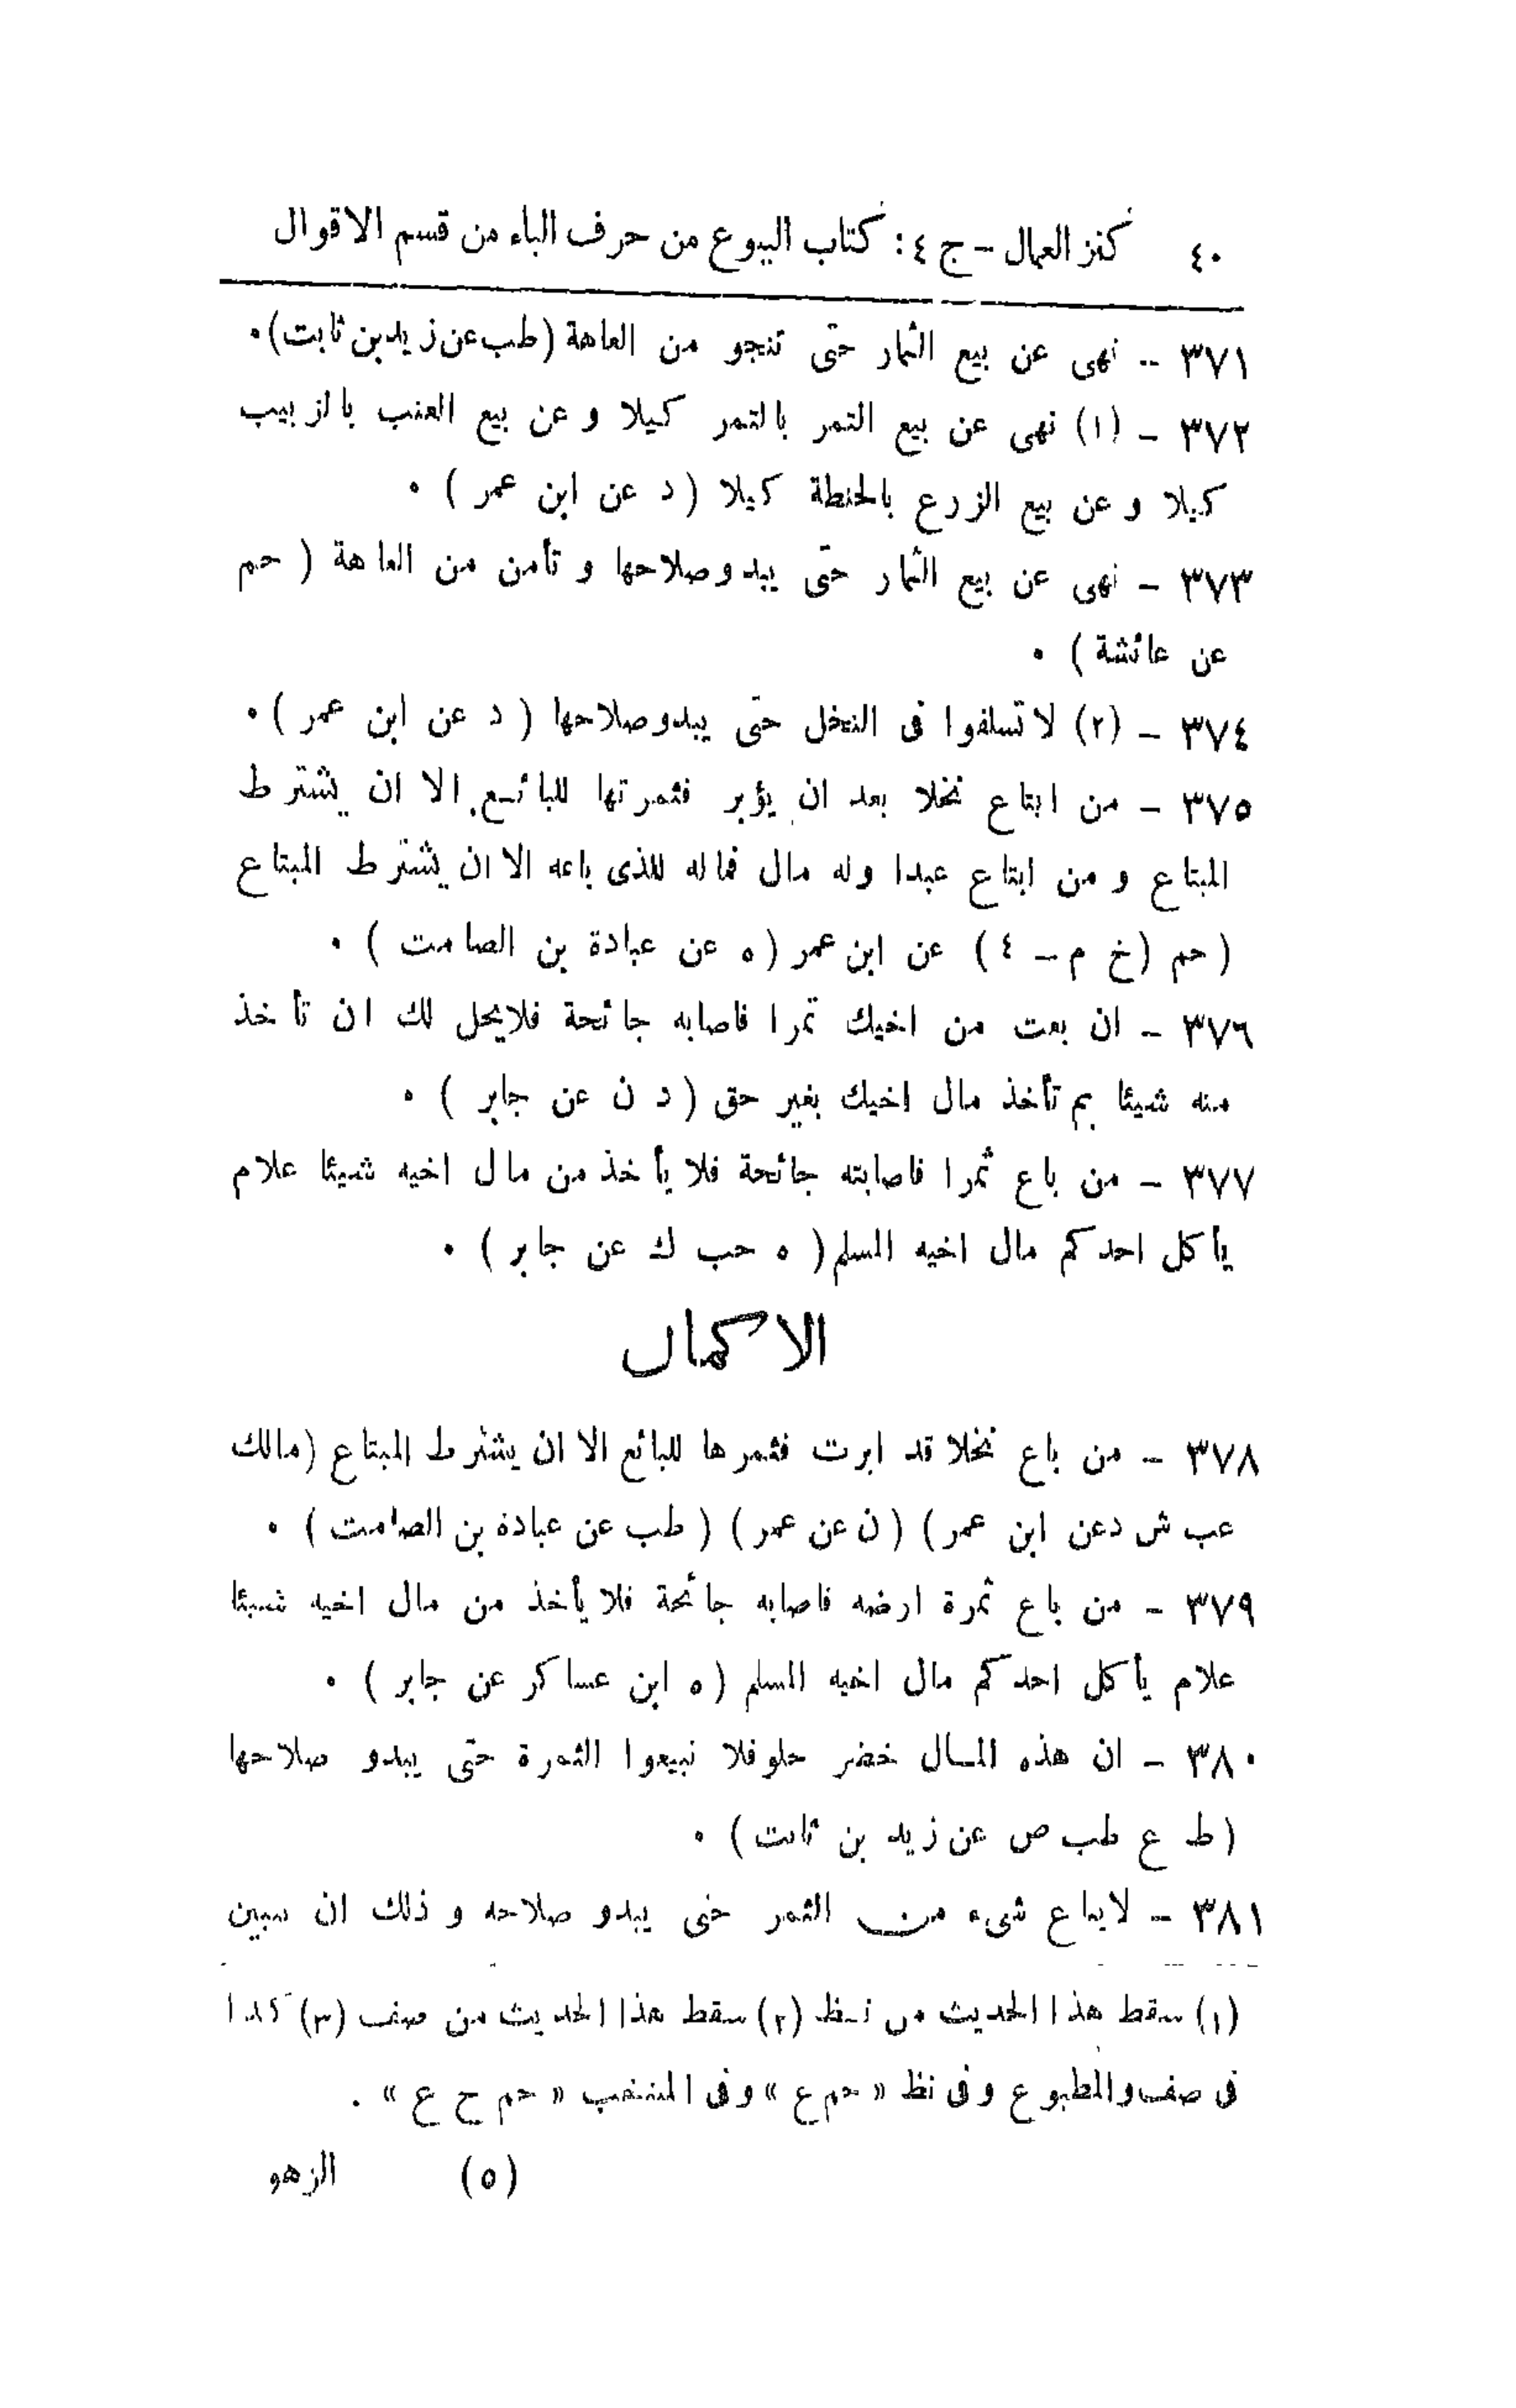 ٤٠ كنز العمال – ج ٤: كتاب البيوع من حرف الباء من قسم الاقوال
٣٧١ – نهى عن بيع الثمار حتى تنجو من العاهة (طب عن زيد بن ثابت)٠
٣٧٢ – (١) نهى عن بيع التمر بالتمر كيلا و عن بيع العنب بالزبيب
كيلا و عن بيع الزرع بالحنطة كيلا (د عن ابن عمر)٠
٣٧٣ – نهى عن بيع الثمار حتى يبدو صلاحها و تأمن من العاهة (حم
عن عائشة)٠
٣٧٤ – (٢) لا تسلفوا فى النخل حتى يبدو صلاحها (د عن ابن عمر)٠
٣٧٥ – من ابتاع نخلا بعد ان يؤبر فثمرتها للبائع الا ان يشترط
المبتاع و من ابتاع عبدا وله مال فماله للذى باعه الا ان يشترط المبتاع
(حم (خ م – ٤) عن ابن عمر (ه عن عبادة بن الصامت)٠
٣٧٦ – ان بعت من اخيك تمرا فاصابه جائحة فلايحل لك ان تأخذ
منه شيئا بم تأخذ مال اخيك بغير حق (د ن عن جابر)٠
٣٧٧ – من باع ثمرا فاصابته جائحة فلا يأخذ من مال اخيه شيئا علام
يأكل احدكم مال اخيه المسلم (ه حب ك عن جابر)٠
الاكمال
٣٧٨ – من باع نخلا قد ابرت فثمرها للبائع الا ان يشترط المبتاع (مالك
عب ش د عن ابن عمر) (ن عن عمر) (طب عن عبادة بن الصامت)٠
٣٧٩ – من باع ثمرة ارضه فاصابه جائحة فلا يأخذ من مال اخيه شيئا
علام يأكل احدكم مال اخيه المسلم (ه ابن عساكر عن جابر)٠
٣٨٠ – ان هذه المال خضر حلو فلا تبيعوا الثمرة حتى يبدو صلاحها
(ط ع طب ص عن زيد بن ثابت)٠
٣٨١ – لايباع شىء من الثمر حتى يبدو صلاحه و ذلك ان
(١) سقط هذا الحديث من نظ (٢) سقط هذا الحديث من صف (٣) كذا
فى صف والمطبوع وفى نظ «حم ع» وفى المنتخب «حم ح ع».
(٥) الزهو